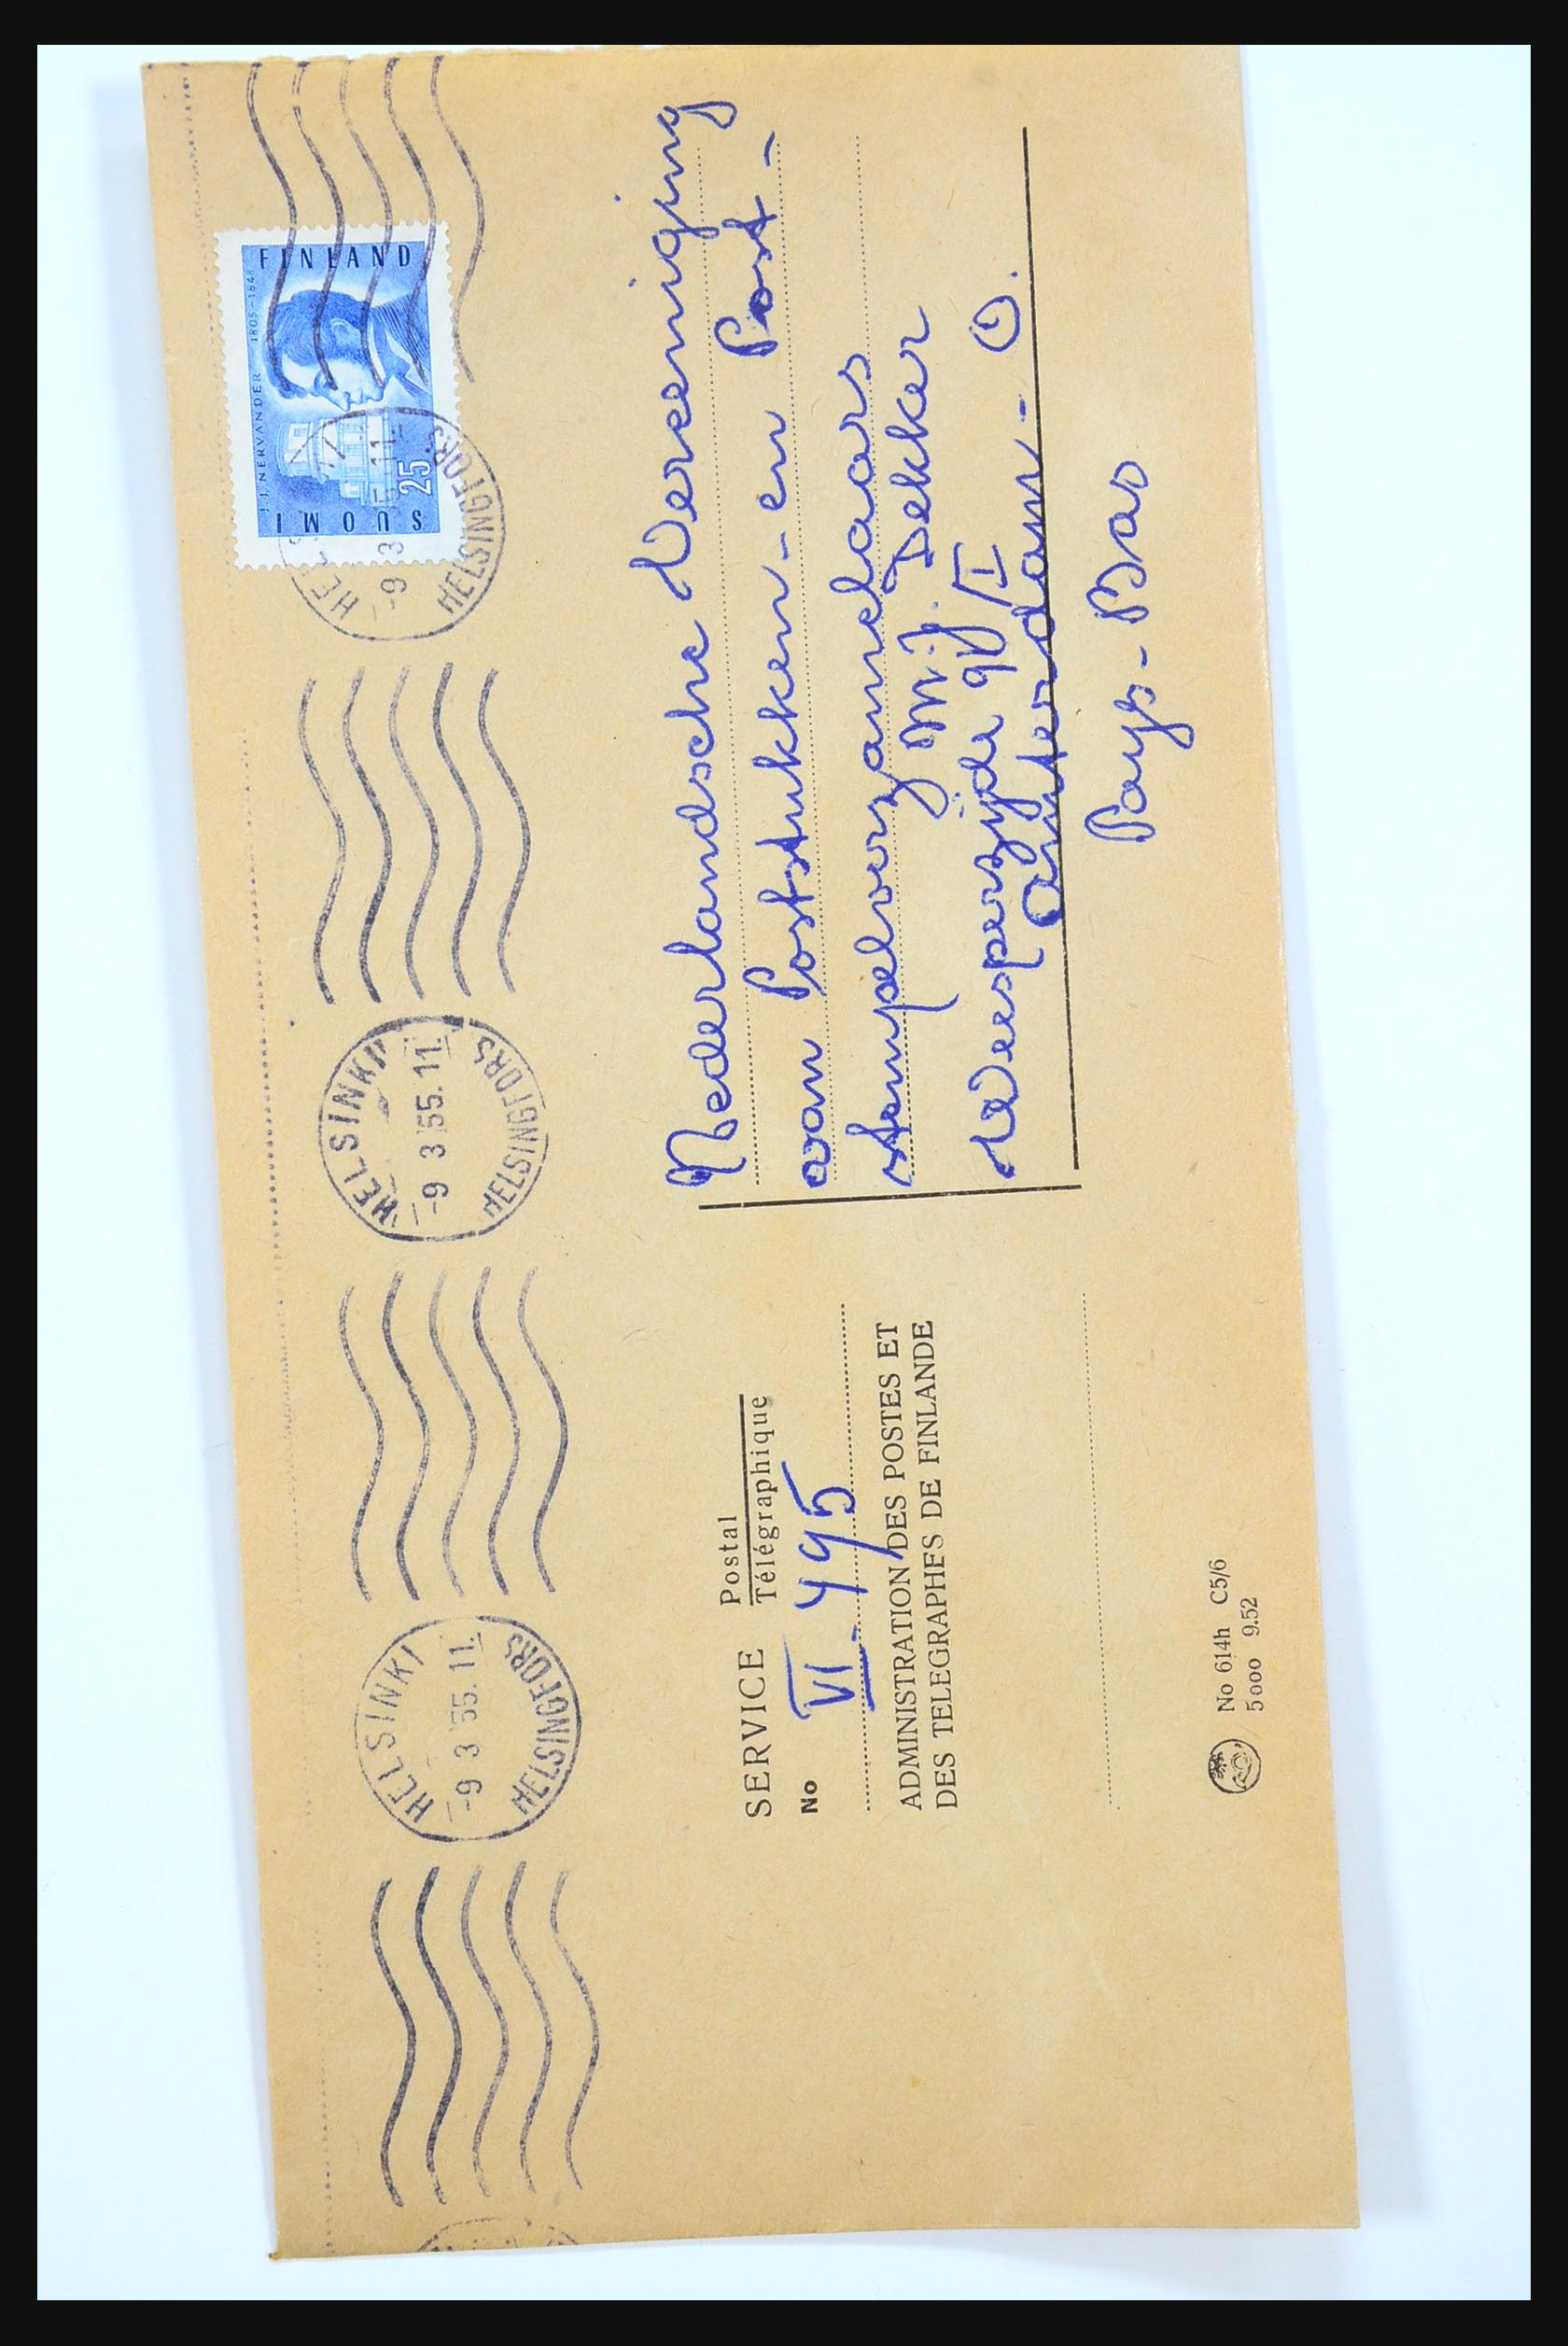 J.J. NERVANDER 1805-1848
SUOMI 25 FINLAND
HELSINKI
-9 3 55. 11.
HELSINGFORS
HELSINKI
-9 3 55. 11.
HELSINGFORS
HELSINKI
-9 3 55. 11.
HELSINGFORS
SERVICE Postal
Télégraphique
No VI - 495
ADMINISTRATION DES POSTES ET
DES TELEGRAPHES DE FINLANDE
Nederlandsche Vereeniging
van Poststukken - en Post -
stempelverzamelaars
M.J. Dekker
Weesperzijde 91/I
Amsterdam - O.
Pays-Bas
No 614h C5/6
5 000 9.52